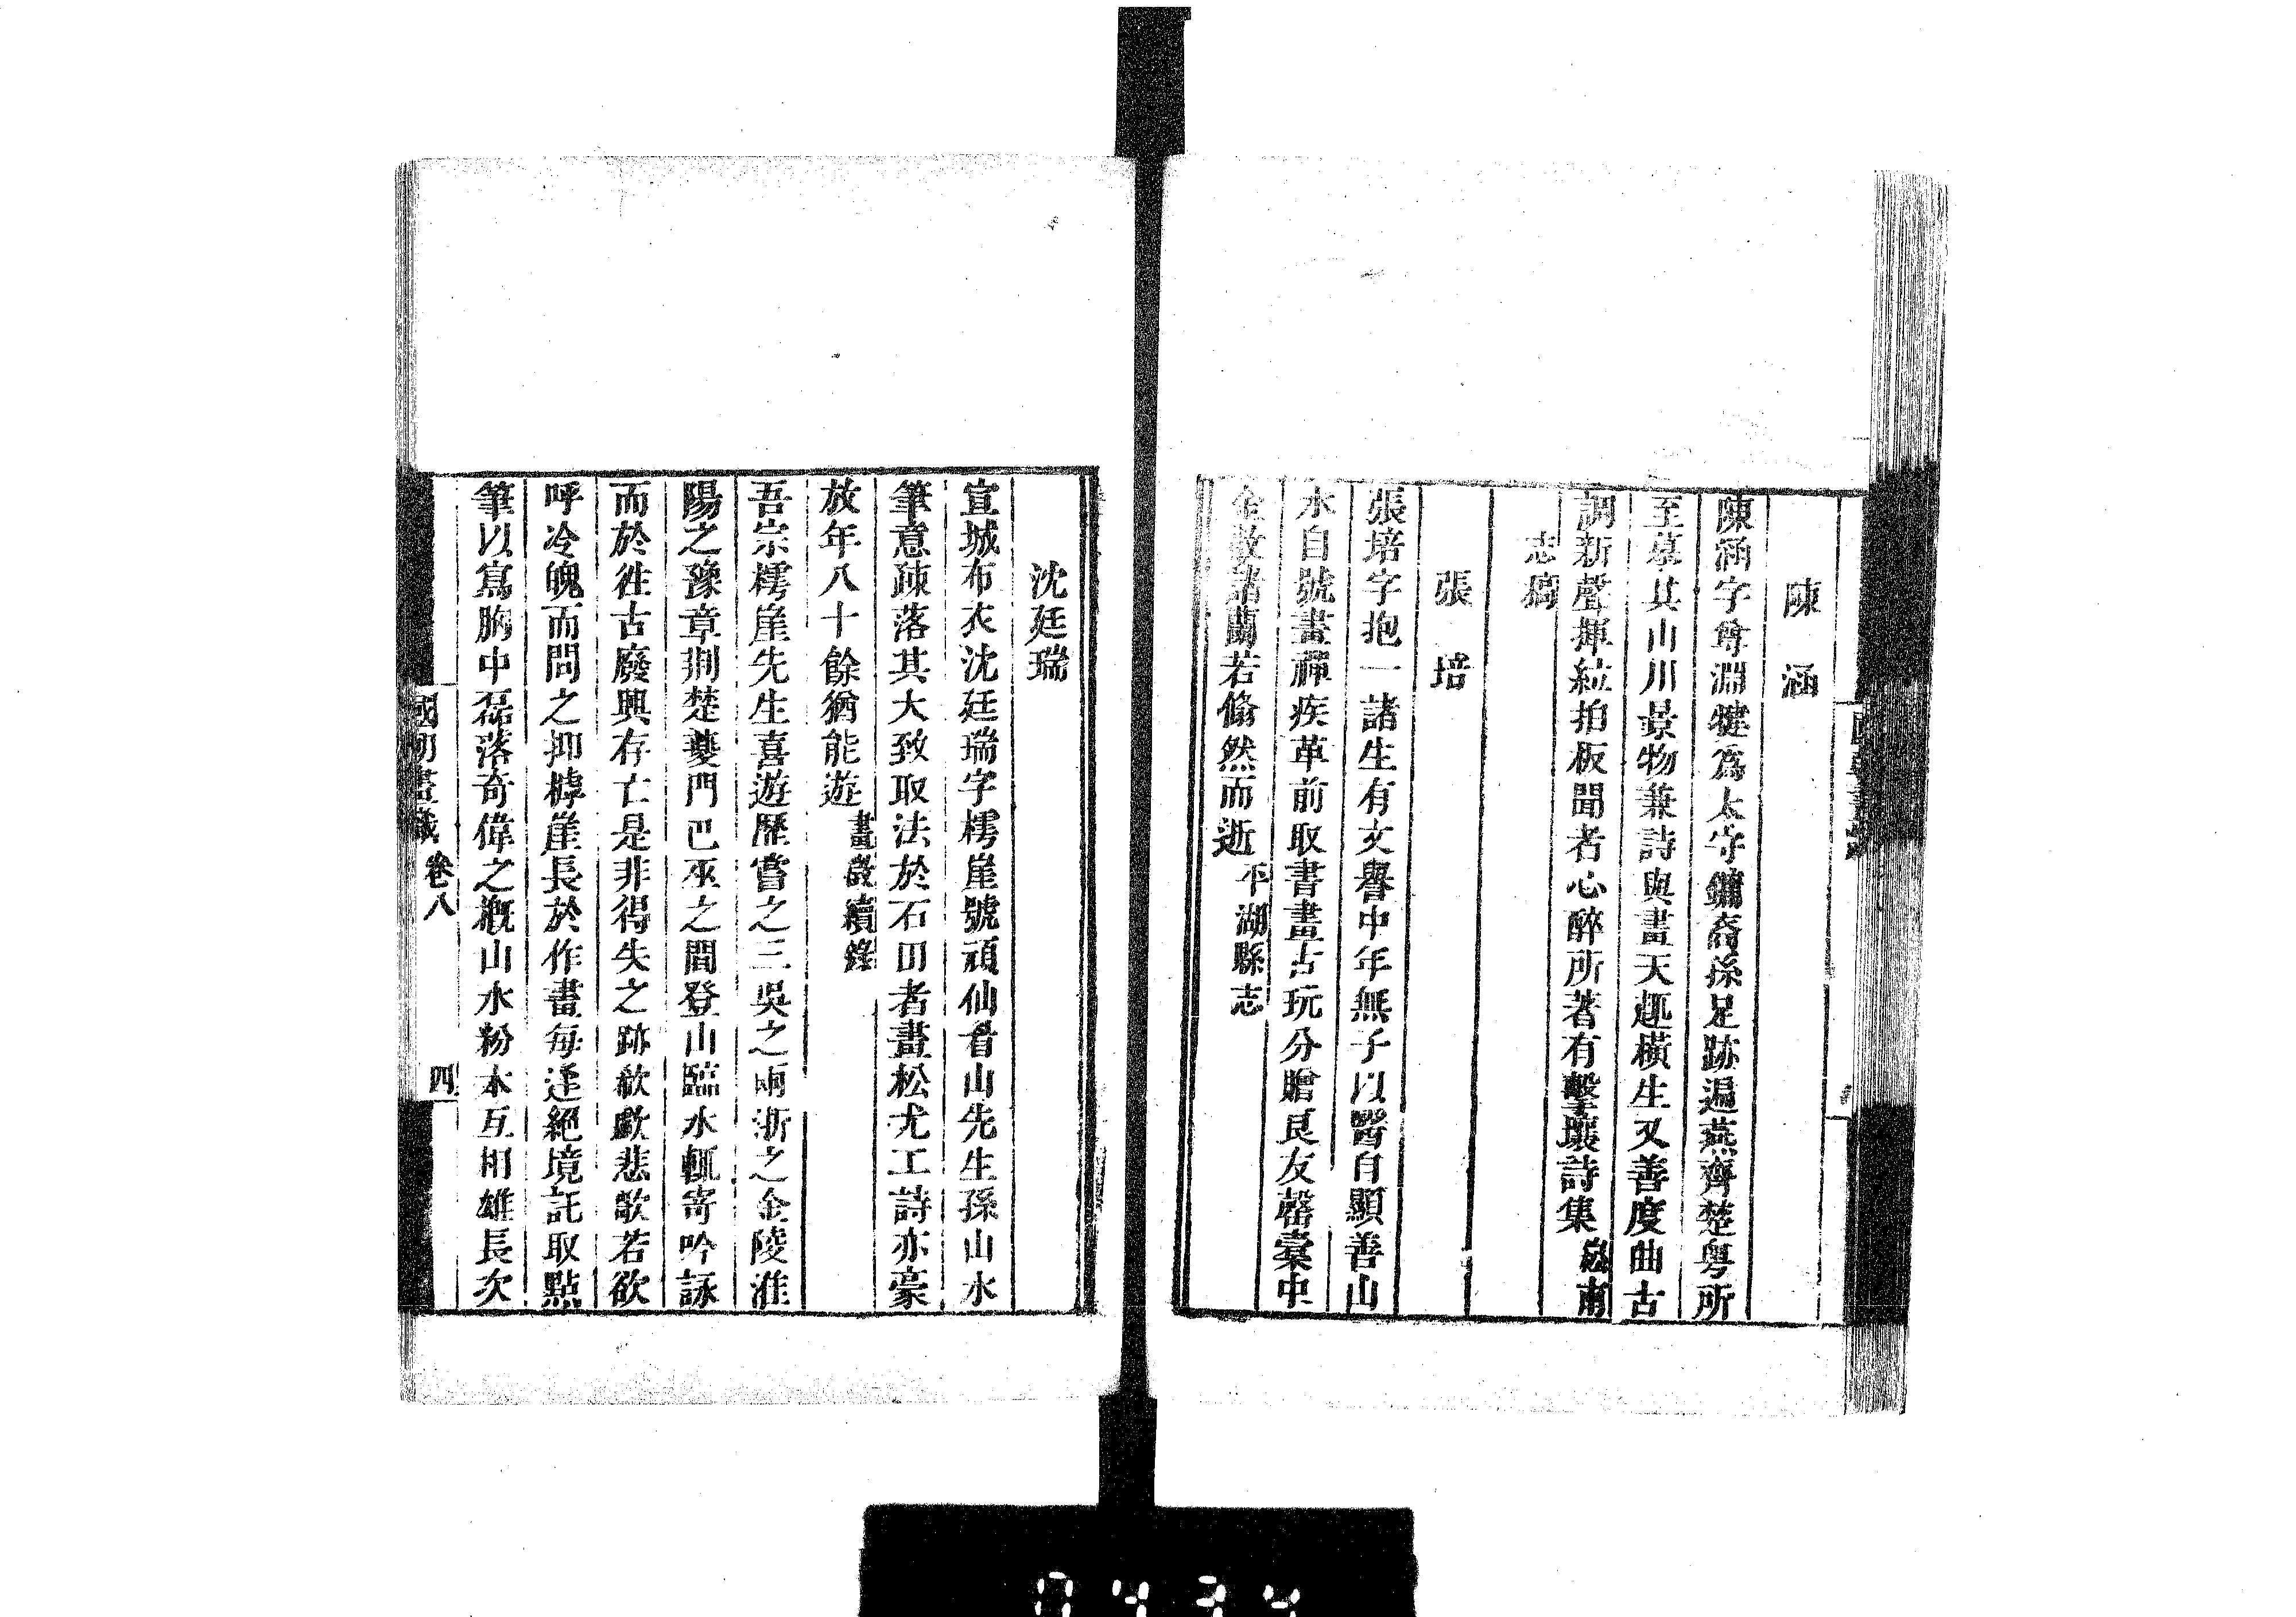 陳涵
陳涵字尊淵犍爲太守鏞裔孫足跡遍燕齊楚粤所
至摹其山川景物兼詩與畫天趣橫生又善度曲古
調新聲揮絃拍板聞者心醉所著有擊壤詩集崧南
志稿
張培
張培字抱一諸生有文譽中年無子以醫自顯善山
水自號畫禪疾革前取書畫古玩分贈艮友罄橐中
金散諸蘭若翛然而逝平湖縣志
沈廷瑞
宣城布衣沈廷瑞字樗崖號頑仙看山先生孫山水
筆意疎落其大致取法於石田者畫松尤工詩亦豪
放年八十餘猶能遊畫識續錄
吾宗樗崖先生喜遊歷嘗之三吳之兩浙之金陵淮
陽之豫章荆楚夔門巴巫之間登山臨水輒寄吟詠
而於徃古廢興存亡是非得失之跡欷歔悲歌若欲
呼冷魄而問之抑樗崖長於作畫每逢絕境託取點
筆以寫胸中磊落奇偉之概山水粉本互相雄長次
國朝畫識 卷八 四